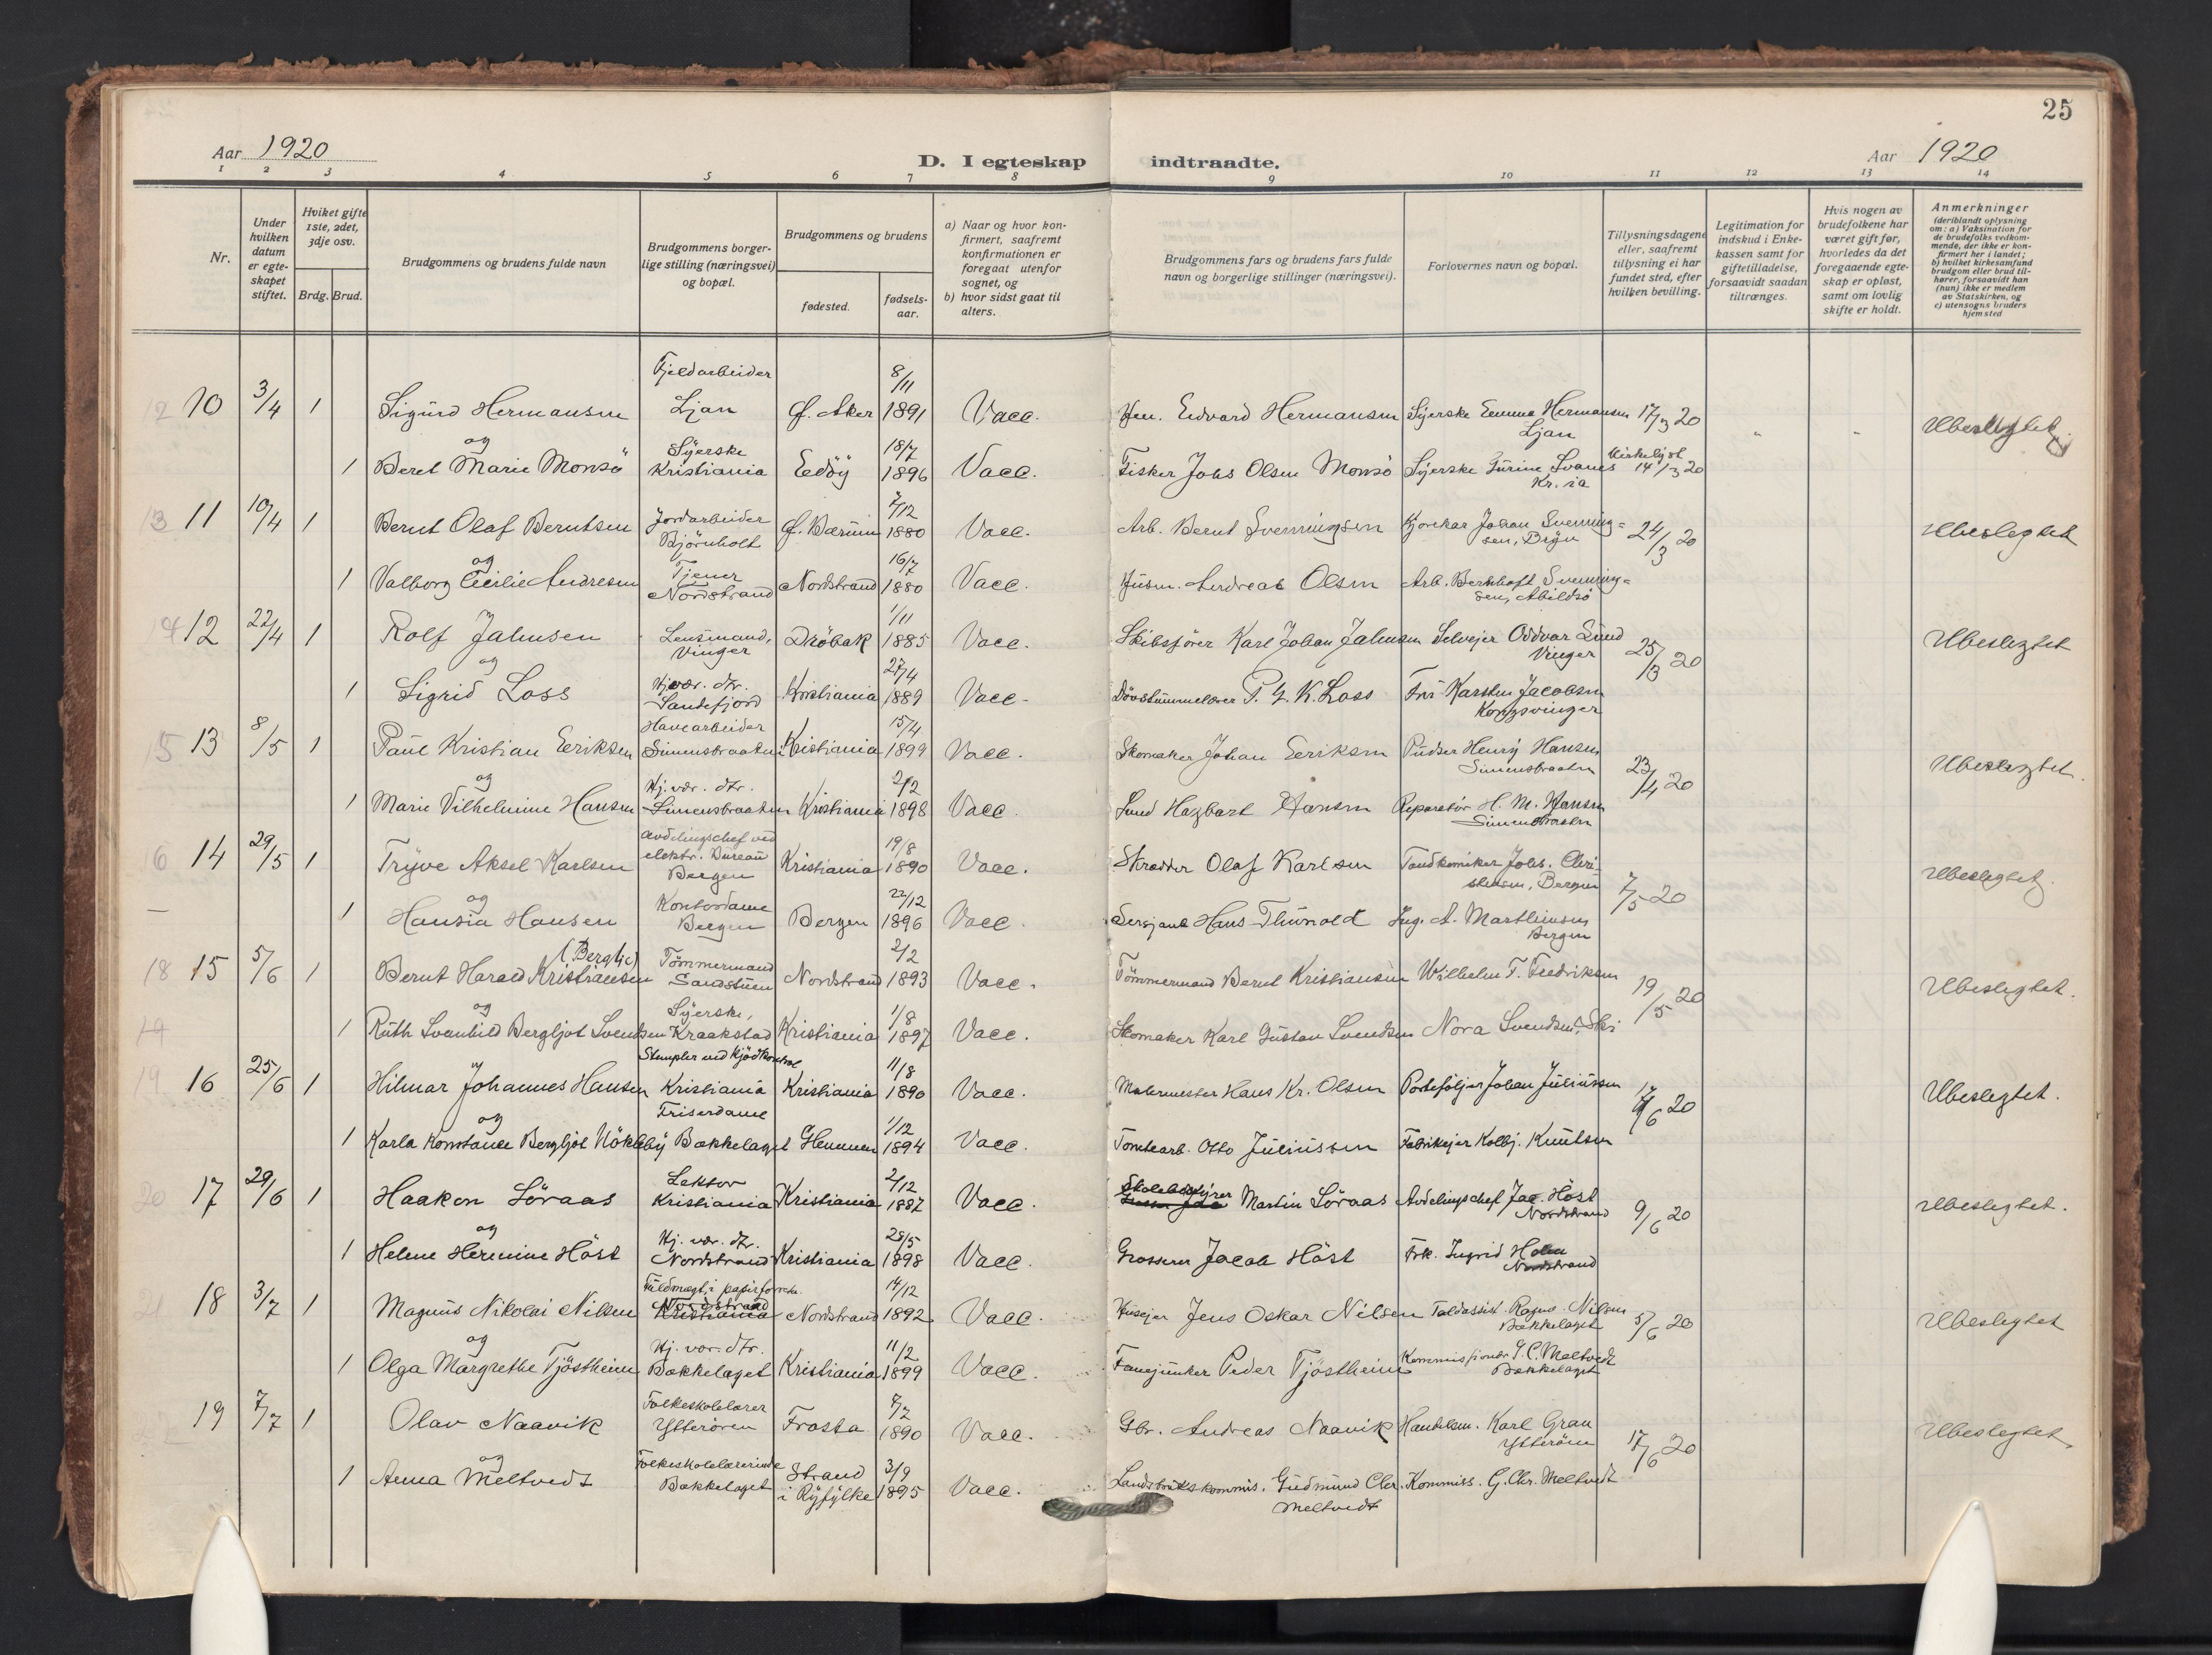 25
Aar 1920
D. I egteskap indtraadte.
Aar 1920
1 2 3 4 5 6 7 8 9 10 11 12 13 14
Nr.
Under hvilken datum er egteskapet stiftet.
Hvilket gifte 1ste, 2det, 3dje osv.
Brdg. Brud.
Brudgommens og brudens fulde navn
Brudgommens borger-
lige stilling (næringsvei)
og bopæl.
Brudgommens og brudens
fødested.
fødsels-
aar.
a) Naar og hvor kon-
firmert, saafremt
konfirmationen er
foregaat utenfor
sognet, og
b) hvor sidst gaat til
alters.
Brudgommens fars og brudens fars fulde
navn og borgerlige stillinger (næringsvei).
Forlovernes navn og bopæl.
Tillysningsdagene
eller, saafremt
tillysning ei har
fundet sted, efter
hvilken bevilling.
Legitimation for
indskud i Enke-
kassen samt for
giftetilladelse,
forsaavidt saadan
tiltrænges.
Hvis nogen av
brudefolkene har
været gift før,
hvorledes da det
foregaaende egte-
skap er opløst,
samt om lovlig
skifte er holdt.
Anmerkninger
(deriblandt oplysning
om: a) Vaksination for
de brudefolks vedkom-
mende, der ikke er kon-
firmert her i landet;
b) hvilket kirkesamfund
brudgom eller brud til-
hører, forsaavidt han
(hun) ikke er medlem
av Statskirken, og
c) utensogns bruders
hjemsted
Fjeldarbeider 8/11
12 10 3/4 1 Sigurd Hermansen Ljan Ø. Aker 1891 Vacc. Edvard Hermansen Syerske Emma Hermansen Ljan 17/3 20 Ubeslegtet.
og Syerske 18/7
1 Beret Marie Monsö Kristiania Edöy 1896 Vacc. Fisker Johs Olsen Monsö Syerske Gurine Svanes Kr.ia 14/3 20
13 11 10/4 1 Bernt Olaf Berntsen Jordarbeider Björnholt Ø. Bærum 7/12 1880 Vacc. Arb. Bernt Svenningsen Kjørekar Johan Svenning=
sen, Bryn 24/3 20 Ubeslegtet
og
1 Valborg Cecilie Andresen Tjener Nordstrand Nordstrand 16/7 1880 Vacc. Husm. Andreas Olsen Arb. Svenning=
sen, Abildsö
14 12 22/4 1 Rolf Jahnsen Lensmand, Vinger Dröbak 1/11 1885 Vacc. Skibsfører Karl Johan Jahnsen Selvejer Oddvar Lund Vinger 25/3 20 Ubeslegtet
og
1 Sigrid Loss Hj.vær. dtr. Sandefjord Kristiania 27/4 1889 Vacc. Dövstummelærer K. Loss Fru Karsten Jacobsen Kongsvinger
15 13 8/5 1 Paul Kristian Eriksen Havearbeider Simensbraaten Kristiania 15/4 1899 Vacc. Skomaker Johan Eriksen Pudser Henry Hansen Simensbraaten 23/4 20 Ubeslegtet.
og
1 Marie Vilhelmine Hansen Hj. vær. dtr. Simensbraaten Kristiania 2/2 1898 Vacc. Hagbart Hansen Reparatör H. M. Hansen Simensbraaten
16 14 29/5 1 Trygve Aksel Karlsen avdelingschef ved elektr. Bureau Bergen Kristiania 19/8 1890 Vacc. Skrædder Olaf Karlsen Johs. Chri-
stensen, Bergen 7/5 20 Ubeslegtet.
og
1 Hansia Hansen Kontordame Bergen Bergen 22/12 1896 Vacc. Sersjant Hans Thunold Ing. A. Marthinsen Bergen
18 15 5/6 1 Bernt Harald Kristiansen (Berglie) Tömmermand Sandstuen Nordstrand 2/2 1893 Vacc. Tömmermand Bernt Kristiansen Wilhelm T. Fredriksen 19/5 20 Ubeslegtet.
og
1 Ruth Svanhild Bergljot Svendsen Syerske, Kraakstad Kristiania 1/8 1897 Vacc. Skomaker Karl Gustav Svendsen Nora Svendsen, Ski
19 16 25/6 1 Hilmar Johannes Hansen Stempler ved Kjødkontrol Kristiania Kristiania 11/8 1890 Vacc. Malermester Hans Kr. Olsen Porteføljer Johan Juliussen 6 20 Ubeslegtet.
og
1 Karla Konstance Bergljot Nökleby Friserdame Bækkelaget Hemnes 1/12 1894 Vacc. Tomtearb. Otto Juliussen Fabrikejer Kolbj. Knutsen
20 17 29/6 1 Haakon Söraas Lektor Kristiania Kristiania 2/12 1887 Vacc. Skolebestyrer Martin Söraas Avdelingschef Jac. Höst Nordstrand 9/6 20 Ubeslegtet.
og
1 Helene Hermine Höst Hj. vær. dtr. Nordstrand Kristiania 28/5 1898 Vacc. Grosserer Jacob Höst Frk. Ingrid Holm Nordstrand
21 18 3/7 1 Magnus Nikolai Nilsen Fuldmægt. i papirforretn. Nordstrand Kristiania Nordstrand 14/12 1892 Vacc. Husejer Jens Oskar Nilsen Toldassist. Ragnv. Nilsen Bækkelaget 5/6 20 Ubeslegtet
og
1 Olga Margrethe Tjöstheim Hj. vær. dtr. Bækkelaget Kristiania 11/2 1899 Vacc. Fanejunker Peder Tjöstheim Kommissjonær G. C. Meltvedt Bækkelaget
19 7/7 1 Olav Naavik Folkeskolelærer Ytterøren Frosta 1890 Vacc. Gbr. Andreas Naavik Handelsm. Karl Gran Ytterøen 17/6 20 Ubeslegtet
og
1 Anna Meltvedt Folkeskolelærerinde Bækkelaget Strand i Ryfylke 3/9 1895 Vacc. Landbrukskommis. Gudmund Chr. Meltvedt Kommiss. G. Chr. Meltvedt